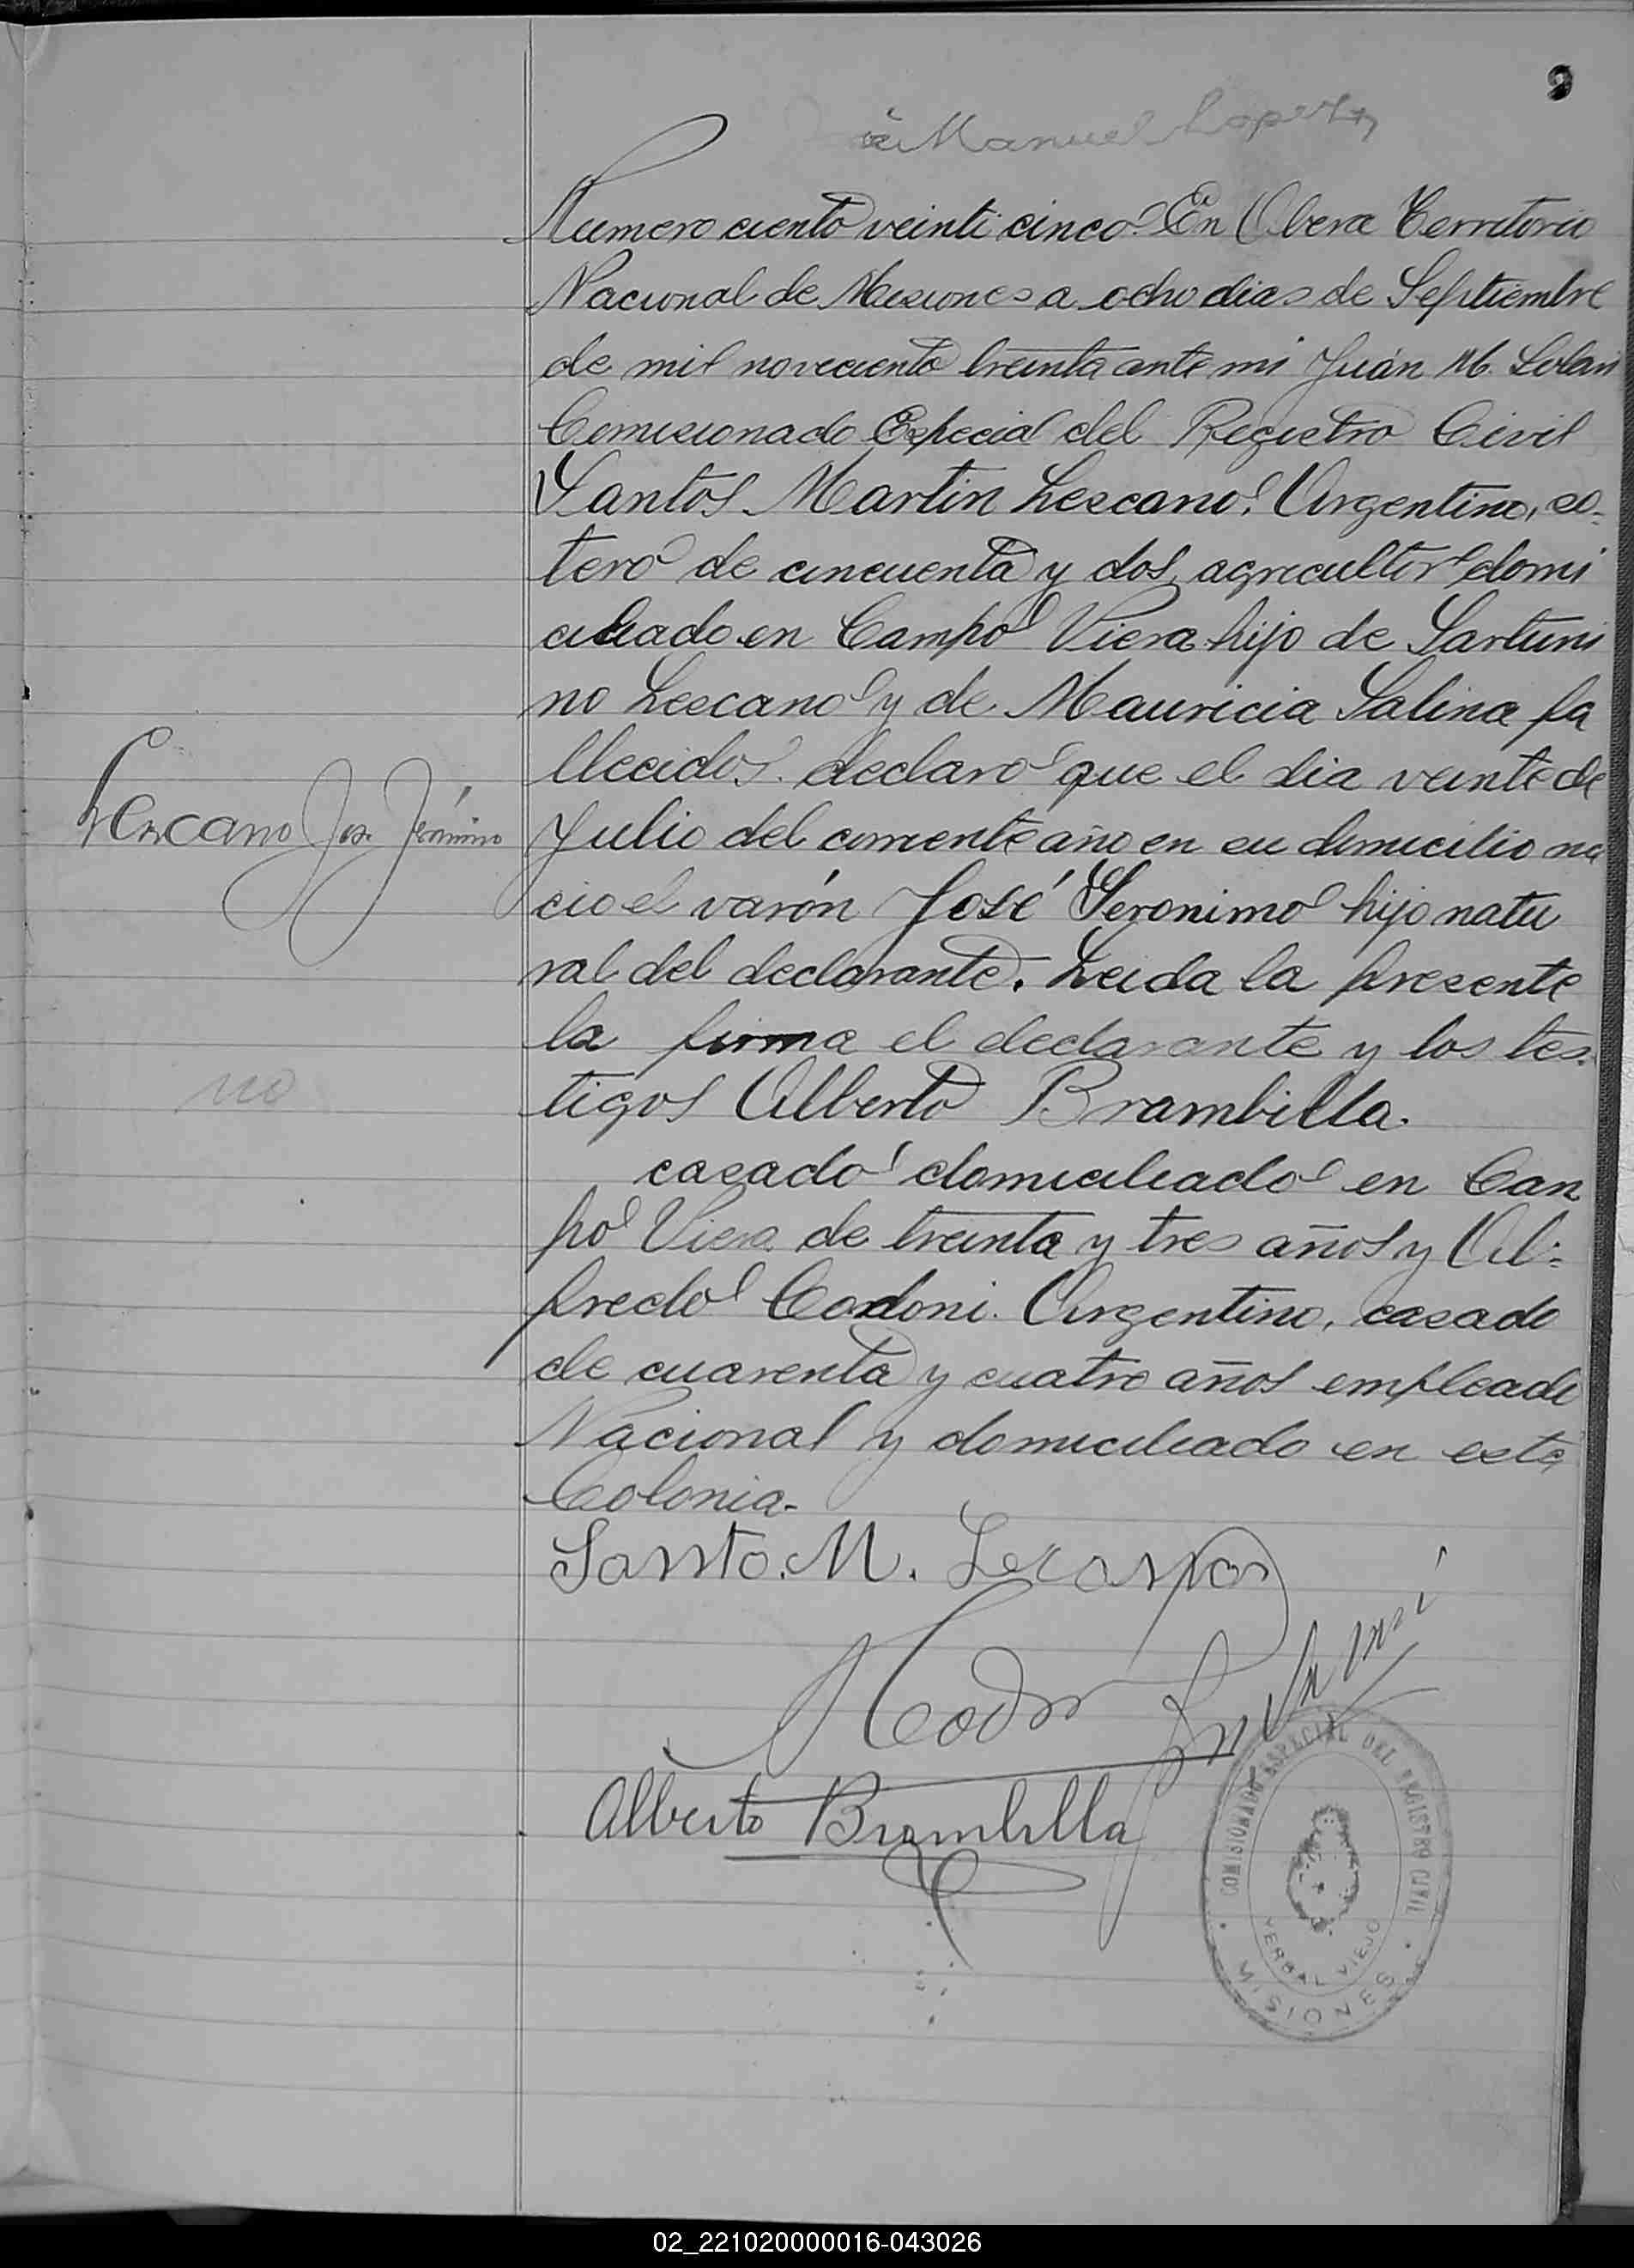 9
Manuel
Numero ciento veinti cinco. En Obera Territorio
Nacional de Misiones a ocho dias de Septiembre
de mil noveciento treinta ante mi Juán M. Solari
Comisionado Especial del Registro Civil
Santos Martin Lescano. Argentino, so-
tero de cincuenta y dos, agricultor domi
ciliado en Campo Viera hijo de Sartuni
no Lescano y de Mauricia Salina fa
llecidos. declaro que el dia veinte de
Lezcano José Jerónimo
Julio del corriente año en su domicilio na
cio el varón José Geronimo hijo natu
ral del declarante. Leida la presente
la firma el declarante y los tes-
no
tigos Alberto Brambilla.
casado domiciliado en Can
po Viera de treinta y tres años y Al-
fredo Codoni. Argentino, casado
de cuarenta y cuatro años empleado
Nacional y domiciliado en esta
Colonia.
Santo. M. Lescano
Alberto Brambilla
COMISIONADO ESPECIAL DEL REGISTRO CIVIL
YERBAL VIEJO
MISIONES
02_221020000016-043026